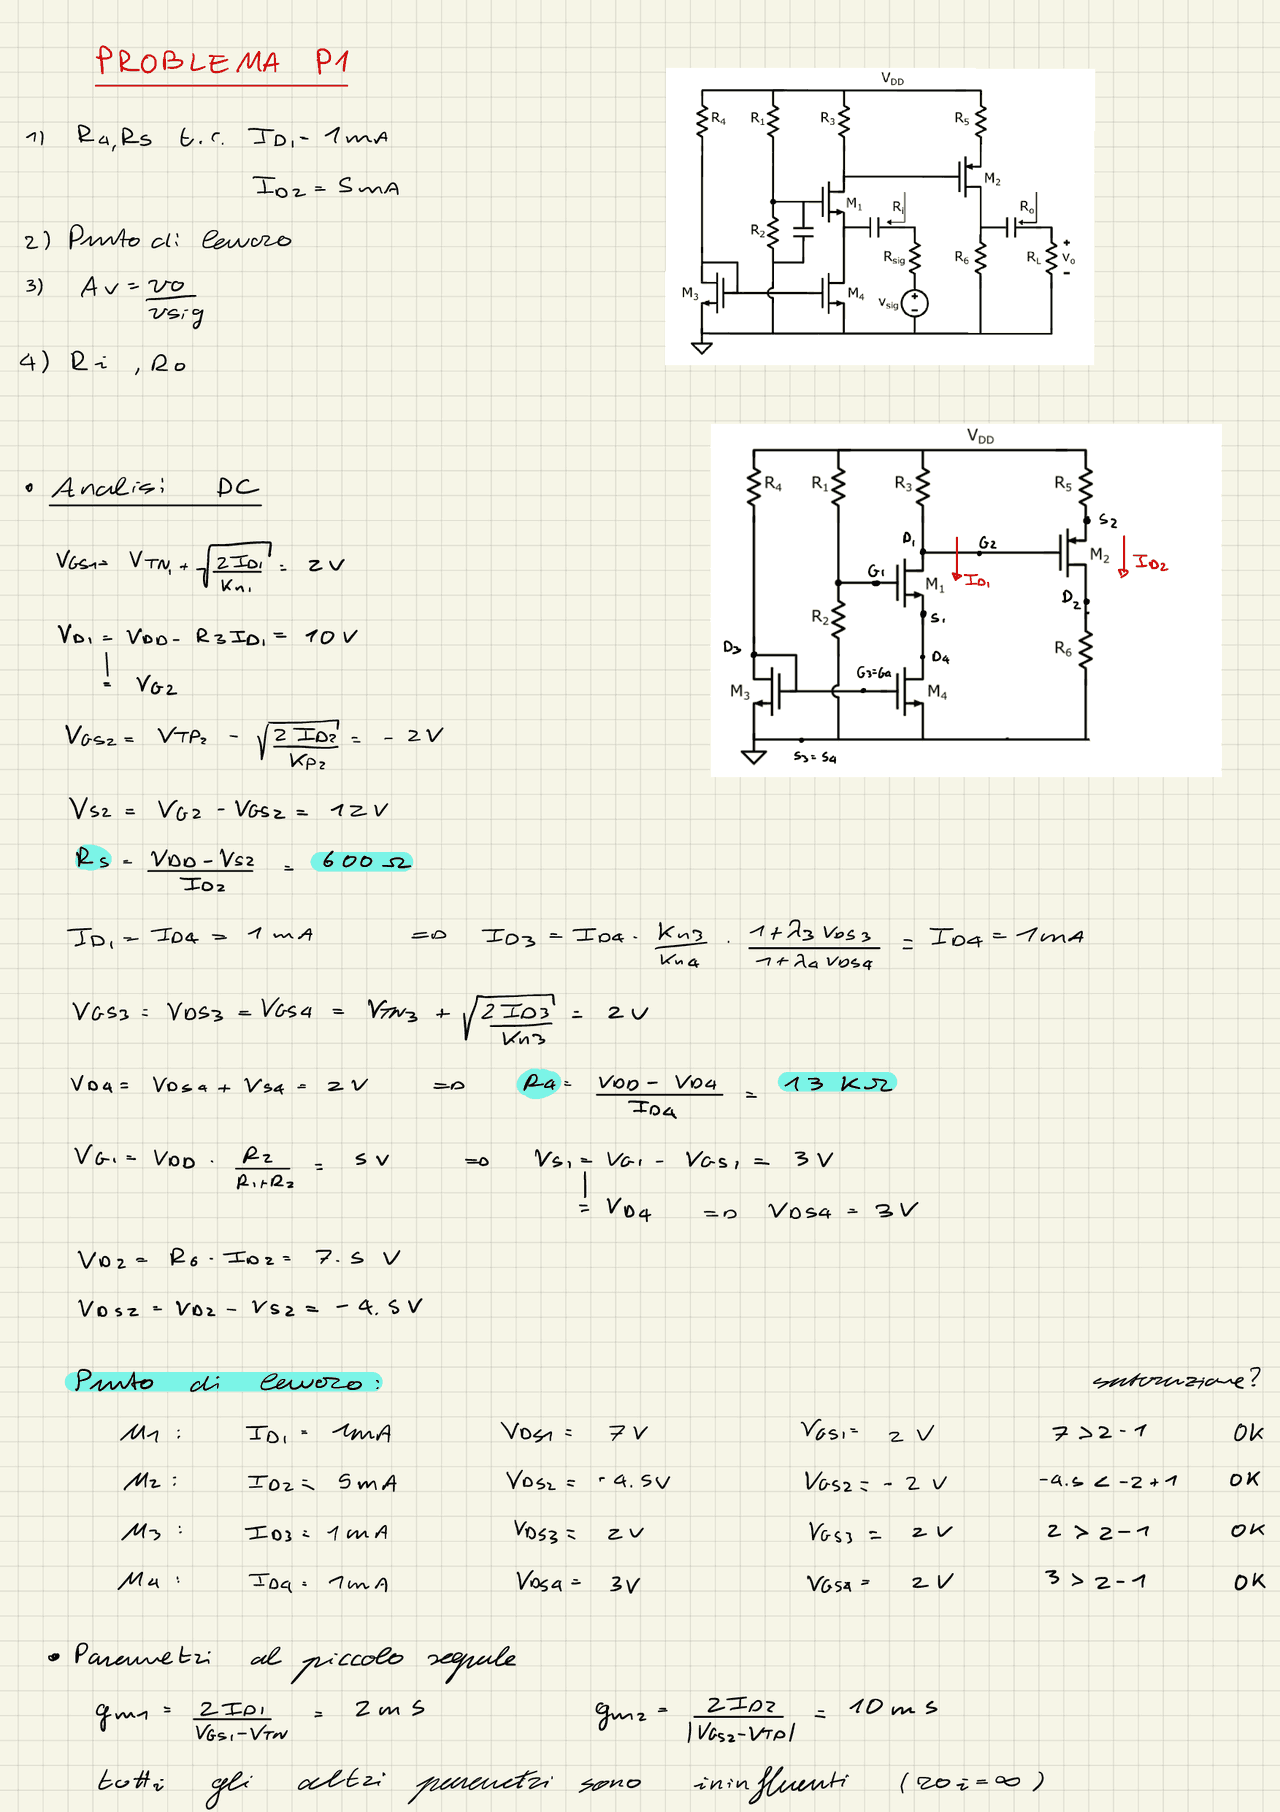 PROBLEMA P1
1) R4, R5 t.c. ID1 = 1mA
ID2 = 5mA
2) Punto di lavoro
3) Av = vo / vsig
4) Ri , Ro
VDD
R4 R1 R3 R5
M2
M1 Ri Ro
R2 Rsig R6 RL + vo -
M3 M4 vsig + -
• Analisi DC
VDD
R4 R1 R3 R5
S2
D1 G2 M2 ID2
G1 M1 ID1
R2 S1 D2
D3 D4 R6
M3 G3=G4 M4
S3=S4
VGS1 = VTN1 + √(2ID1 / Kn1) = 2V
VD1 = VDD - R3 ID1 = 10V
= VG2
VGS2 = VTP2 - √(2 ID2 / KP2) = - 2V
VS2 = VG2 - VGS2 = 12V
R5 = (VDD - VS2) / ID2 = 600 Ω
ID1 = ID4 = 1mA => ID3 = ID4 · Kn3/Kn4 · (1+λ3 VDS3)/(1+λ4 VDS4) = ID4 = 1mA
VGS3 = VDS3 = VGS4 = VTN3 + √(2 ID3 / Kn3) = 2V
VD4 = VDS4 + VS4 = 2V => R4 = (VDD - VD4) / ID4 = 13 KΩ
VG1 = VDD · R2 / (R1+R2) = 5V => VS1 = VG1 - VGS1 = 3V
= VD4 => VDS4 = 3V
VD2 = R6 · ID2 = 7.5 V
VDS2 = VD2 - VS2 = - 4.5V
Punto di lavoro: saturazione?
M1 : ID1 = 1mA VDS1 = 7V VGS1 = 2V 7 > 2 - 1 OK
M2 : ID2 = 5mA VDS2 = - 4.5V VGS2 = - 2V -4.5 < -2+1 OK
M3 : ID3 = 1mA VDS3 = 2V VGS3 = 2V 2 > 2 - 1 OK
M4 : ID4 = 1mA VDS4 = 3V VGS4 = 2V 3 > 2 - 1 OK
• Parametri al piccolo segnale
gm1 = 2ID1 / (VGS1 - VTN) = 2mS gm2 = 2ID2 / |VGS2 - VTP| = 10mS
tutti gli altri parametri sono ininfluenti (roi = ∞)